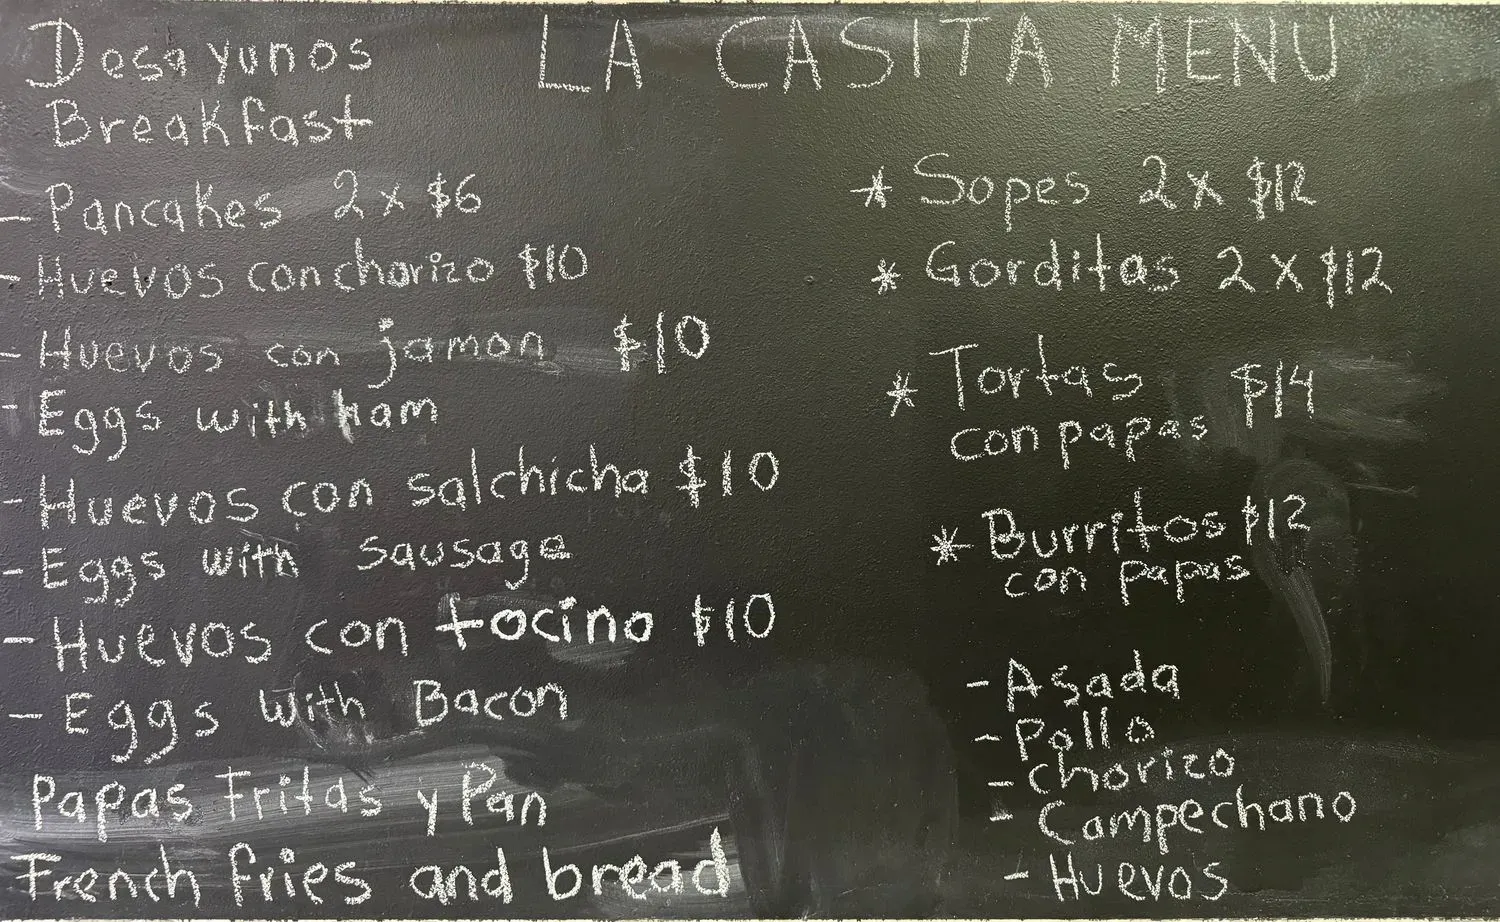 LA CASITA MENU
Desayunos
Breakfast
- Pancakes 2 x $6
- Huevos con chorizo $10
- Huevos con jamon $10
- Eggs with ham
- Huevos con salchicha $10
- Eggs with sausage
- Huevos con tocino $10
- Eggs with Bacon
Papas Fritas y Pan
French fries and bread
* Sopes 2 x $12
* Gorditas 2 x $12
* Tortas $14
con papas
* Burritos $12
con papas
- Asada
- Pollo
- Chorizo
- Campechano
- Huevos